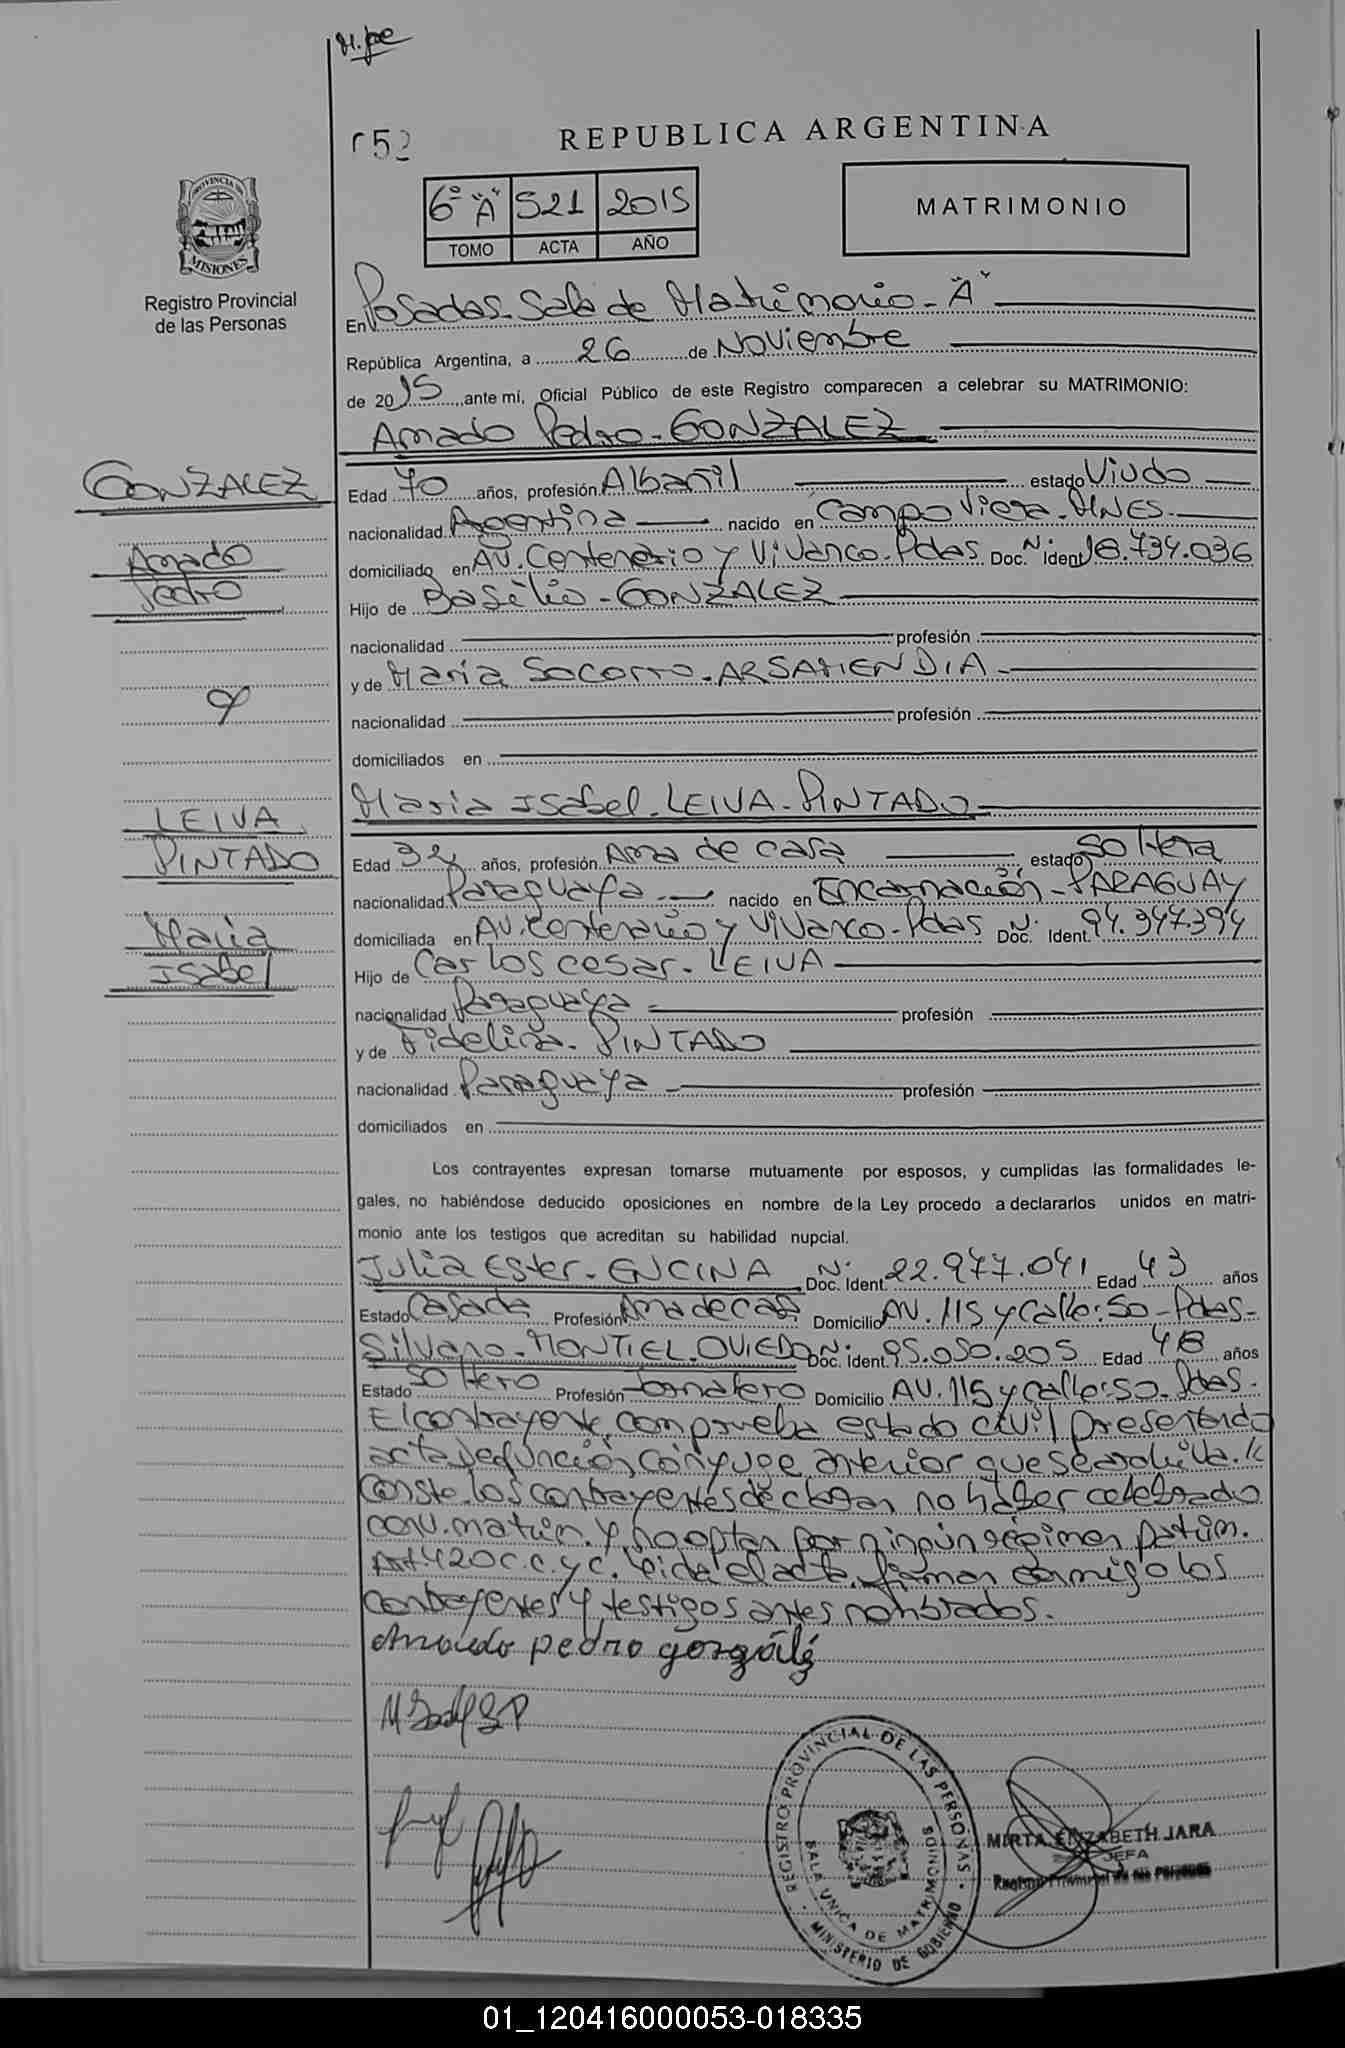 052
REPUBLICA ARGENTINA
6º "A" 521 2015
TOMO ACTA AÑO
MATRIMONIO
PROVINCIA DE
MISIONES
Registro Provincial
de las Personas
En Posadas-Sala de Matrimonio-"A"
República Argentina, a 26 de Noviembre
de 2015, ante mí, Oficial Público de este Registro comparecen a celebrar su MATRIMONIO:
Amado Pedro-GONZALEZ
GONZALEZ
Amado
Pedro
Edad 70 años, profesión Albañil estado Viudo
nacionalidad Argentina nacido en Campo Viera-MNES-
domiciliado en AV. Centenario y Vivanco-Pdas Doc. Nº ident 18.734.036
Hijo de Basilio-GONZALEZ
nacionalidad profesión
y de Maria Socorro-ARSAMENDIA-
nacionalidad profesión
domiciliados en
y
Maria Isabel-LEIVA-PINTADO
LEIVA
PINTADO
Maria
Isabel
Edad 32 años, profesión Ama de casa estado Soltera
nacionalidad Paraguaya nacido en Encarnación-PARAGUAY
domiciliada en AV. Centenario y Vivanco-Pdas Doc. Nº Ident. 94.347.394
Hijo de Carlos Cesar-LEIVA
nacionalidad Paraguaya profesión
y de Fidelina-PINTADO
nacionalidad Paraguaya profesión
domiciliados en
Los contrayentes expresan tomarse mutuamente por esposos, y cumplidas las formalidades le-
gales, no habiéndose deducido oposiciones en nombre de la Ley procedo a declararlos unidos en matri-
monio ante los testigos que acreditan su habilidad nupcial.
Julia Ester-ENCINA Doc. Nº Ident. 22.977.041 Edad 43 años
Estado Casada Profesión Ama de casa Domicilio AV. 115 y Calle:50-Pdas-
Silvano-MONTIEL-OVIEDO Doc. Nº ident. 95.050.205 Edad 48 años
Estado Soltero Profesión Jornalero Domicilio AV. 115 y calle:50-Pdas-
El contrayente, comprueba estado civil presentando
acta defunción cónyuge anterior que se archiva.
Conste los contrayentes declaran no haber celebrado
conv. matrim. y no optan por ningún régimen patrim.
Art 420 C.C. y C. Leída el acta, firman conmigo los
contrayentes y testigos antes nombrados.
Amado pedro gonzález
REGISTRO PROVINCIAL DE LAS PERSONAS
SALA UNICA DE MATRIMONIOS
MINISTERIO DE GOBIERNO
MIRTA ELIZABETH JARA
JEFA
Registro Provincial de las Personas
01_120416000053-018335